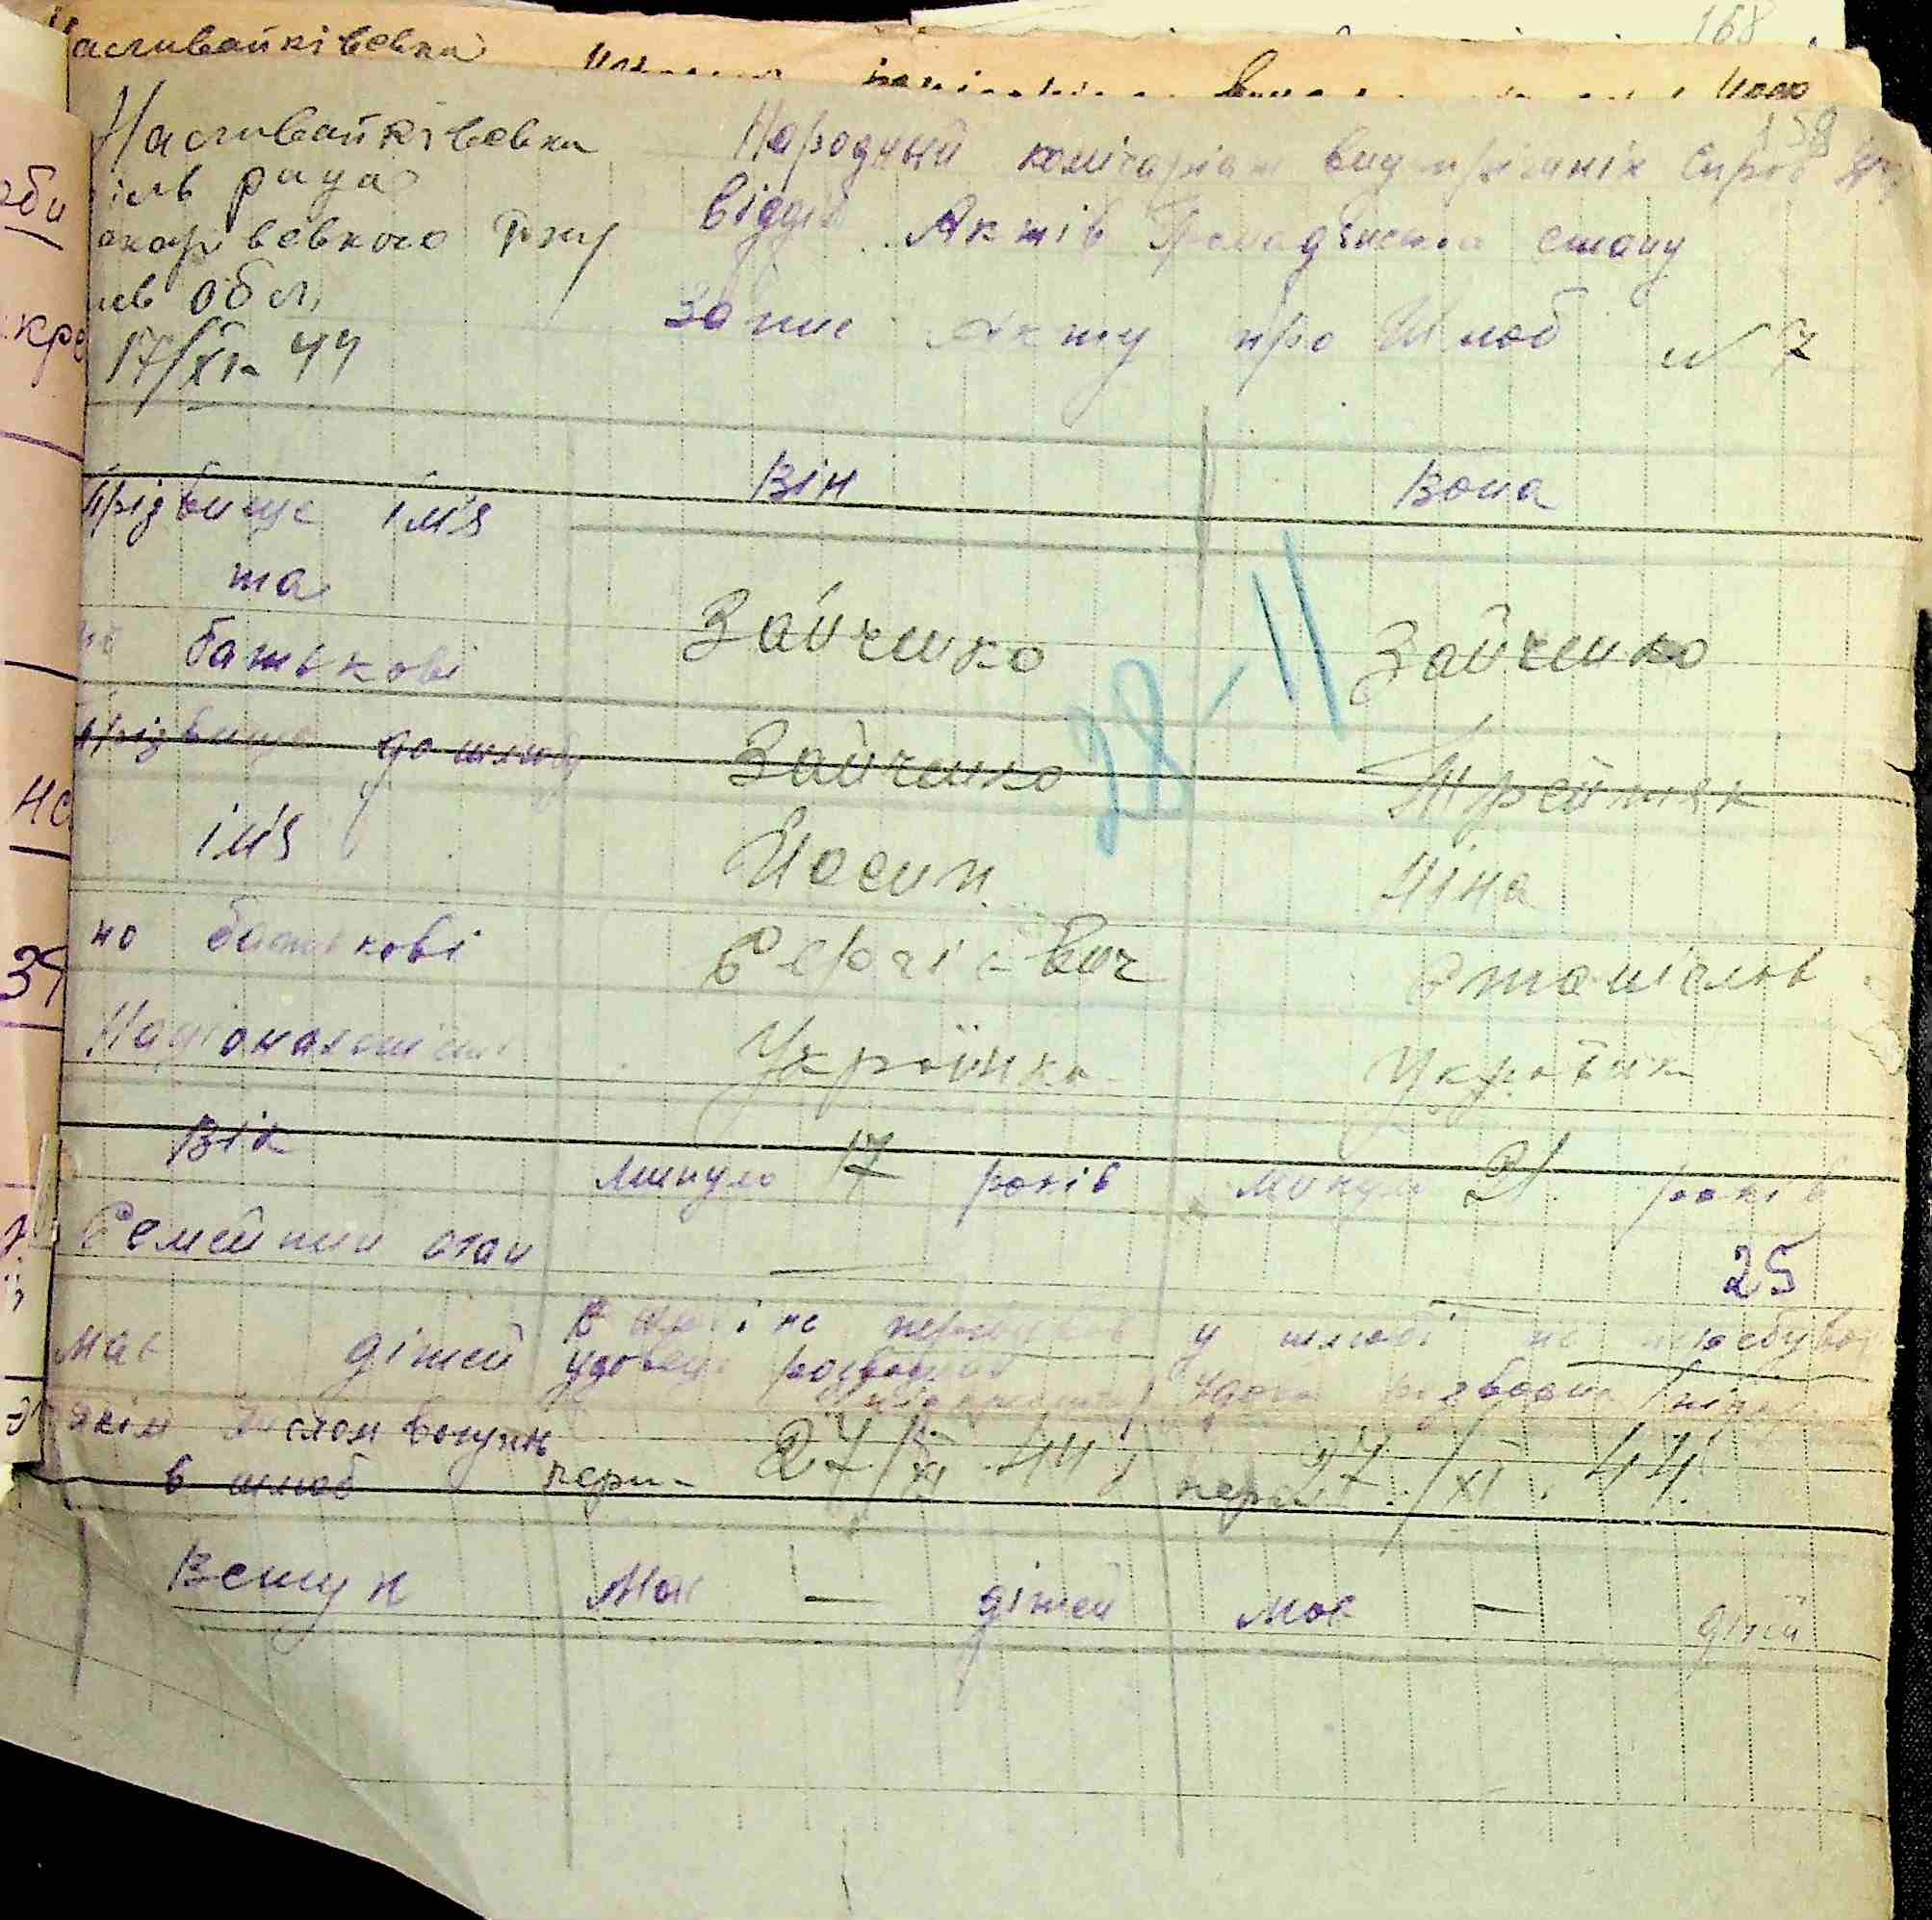 168
139
Насливайківська
Народный комісаріат внутрішніх справ
іль рада
відділ Актів Громадянського стану
окарівського Р-ну
їв обл,
Запис Акту про Шлюб № 7
17/XI- 44
Він Вона
Прізвище ім'я
та
по батькові Зайченко Зайченко
28-11
Прізвище до шлюбу Зайченко Трейтяк
ім'я Йосип Ніна
по батькові Сергієвич Станіслов
Національність Українка Українка
Вік Минуло 17 років Минуло 21 років
Семейний стан —
25
має дітей В шлюбі не перебував у шлюбі не перебував
удовець розведений удова розведена
яким числом вступив 27/XI 44 27/XI. 44
в шлюб перш
Вступ Має — дітей має — дітей